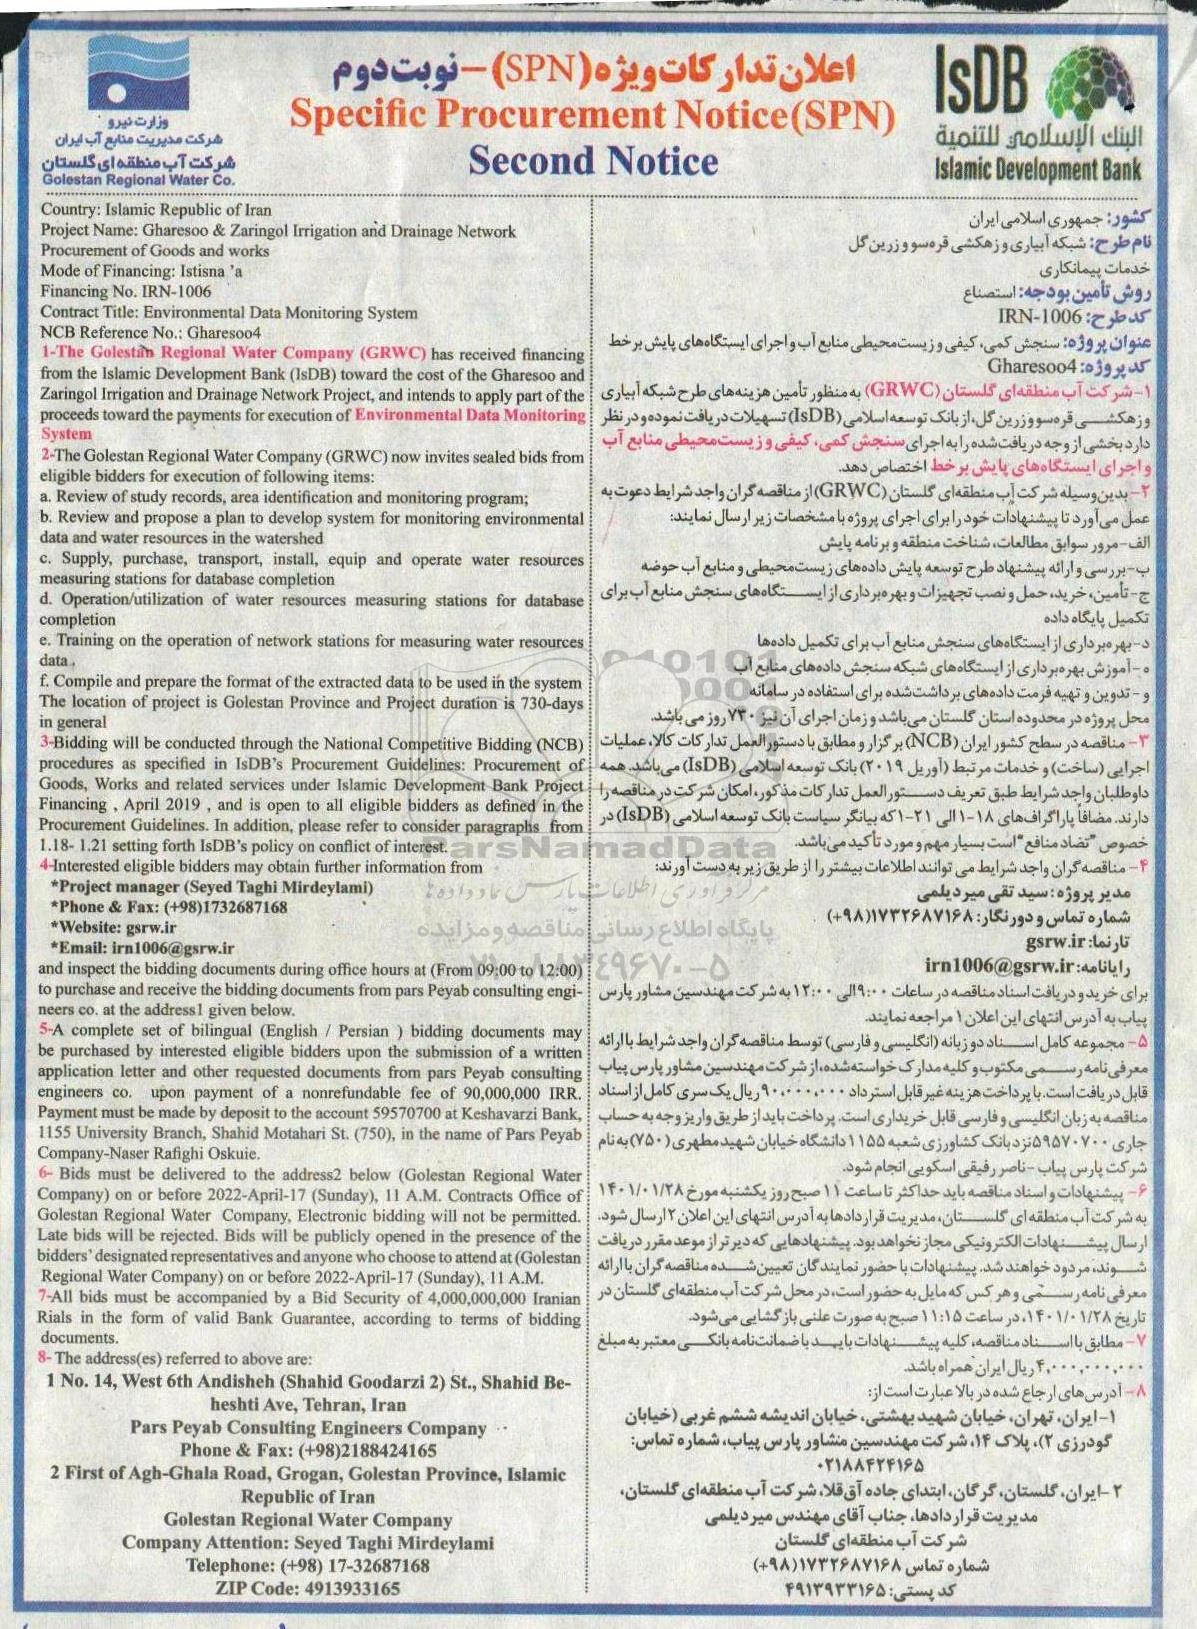 اعلان تدارکات ویژه (SPN) – نوبت دوم
Specific Procurement Notice(SPN)
Second Notice
وزارت نیرو
شرکت مدیریت منابع آب ایران
شرکت آب منطقه ای گلستان
Golestan Regional Water Co.
IsDB
البنك الإسلامي للتنمية
Islamic Development Bank
Country: Islamic Republic of Iran
Project Name: Gharesoo & Zaringol Irrigation and Drainage Network
Procurement of Goods and works
Mode of Financing: Istisna 'a
Financing No. IRN-1006
Contract Title: Environmental Data Monitoring System
NCB Reference No.: Gharesoo4
1-The Golestan Regional Water Company (GRWC) has received financing
from the Islamic Development Bank (IsDB) toward the cost of the Gharesoo and
Zaringol Irrigation and Drainage Network Project, and intends to apply part of the
proceeds toward the payments for execution of Environmental Data Monitoring
System
2-The Golestan Regional Water Company (GRWC) now invites sealed bids from
eligible bidders for execution of following items:
a. Review of study records, area identification and monitoring program;
b. Review and propose a plan to develop system for monitoring environmental
data and water resources in the watershed
c. Supply, purchase, transport, install, equip and operate water resources
measuring stations for database completion
d. Operation/utilization of water resources measuring stations for database
completion
e. Training on the operation of network stations for measuring water resources
data.
f. Compile and prepare the format of the extracted data to be used in the system
The location of project is Golestan Province and Project duration is 730-days
in general
3-Bidding will be conducted through the National Competitive Bidding (NCB)
procedures as specified in IsDB's Procurement Guidelines: Procurement of
Goods, Works and related services under Islamic Development Bank Project
Financing , April 2019 , and is open to all eligible bidders as defined in the
Procurement Guidelines. In addition, please refer to consider paragraphs from
1.18- 1.21 setting forth IsDB's policy on conflict of interest.
4-Interested eligible bidders may obtain further information from
*Project manager (Seyed Taghi Mirdeylami)
*Phone & Fax: (+98)1732687168
*Website: gsrw.ir
*Email: irn1006@gsrw.ir
and inspect the bidding documents during office hours at (From 09:00 to 12:00)
to purchase and receive the bidding documents from pars Peyab consulting engi-
neers co. at the address1 given below.
5-A complete set of bilingual (English / Persian ) bidding documents may
be purchased by interested eligible bidders upon the submission of a written
application letter and other requested documents from pars Peyab consulting
engineers co. upon payment of a nonrefundable fee of 90,000,000 IRR.
Payment must be made by deposit to the account 59570700 at Keshavarzi Bank,
1155 University Branch, Shahid Motahari St. (750), in the name of Pars Peyab
Company-Naser Rafighi Oskuie.
6- Bids must be delivered to the address2 below (Golestan Regional Water
Company) on or before 2022-April-17 (Sunday), 11 A.M. Contracts Office of
Golestan Regional Water Company, Electronic bidding will not be permitted.
Late bids will be rejected. Bids will be publicly opened in the presence of the
bidders' designated representatives and anyone who choose to attend at (Golestan
Regional Water Company) on or before 2022-April-17 (Sunday), 11 A.M.
7-All bids must be accompanied by a Bid Security of 4,000,000,000 Iranian
Rials in the form of valid Bank Guarantee, according to terms of bidding
documents.
8- The address(es) referred to above are:
1 No. 14, West 6th Andisheh (Shahid Goodarzi 2) St., Shahid Be-
heshti Ave, Tehran, Iran
Pars Peyab Consulting Engineers Company
Phone & Fax: (+98)2188424165
2 First of Agh-Ghala Road, Grogan, Golestan Province, Islamic
Republic of Iran
Golestan Regional Water Company
Company Attention: Seyed Taghi Mirdeylami
Telephone: (+98) 17-32687168
ZIP Code: 4913933165
کشور: جمهوری اسلامی ایران
نام طرح: شبکه آبیاری و زهکشی قره‌سو و زرین گل
خدمات پیمانکاری
روش تأمین بودجه: استصناع
کد طرح: IRN-1006
عنوان پروژه: سنجش کمی، کیفی و زیست‌محیطی منابع آب و اجرای ایستگاه‌های پایش بر خط
کد پروژه: Gharesoo4
۱- شرکت آب منطقه‌ای گلستان (GRWC) به منظور تأمین هزینه‌های طرح شبکه آبیاری
و زهکشی قره‌سو و زرین گل، از بانک توسعه اسلامی (IsDB) تسهیلات دریافت نموده و در نظر
دارد بخشی از وجه دریافت شده را به اجرای سنجش کمی، کیفی و زیست‌محیطی منابع آب
و اجرای ایستگاه‌های پایش بر خط اختصاص دهد.
۲- بدین‌وسیله شرکت آب منطقه‌ای گلستان (GRWC) از مناقصه گران واجد شرایط دعوت به
عمل می‌آورد تا پیشنهادات خود را برای اجرای پروژه با مشخصات زیر ارسال نمایند:
الف- مرور سوابق مطالعات، شناخت منطقه و برنامه پایش
ب- بررسی و ارائه پیشنهاد طرح توسعه پایش داده‌های زیست‌محیطی و منابع آب حوضه
ج- تأمین، خرید، حمل و نصب تجهیزات و بهره‌برداری از ایستگاه‌های سنجش منابع آب برای
تکمیل پایگاه داده
د- بهره‌برداری از ایستگاه‌های سنجش منابع آب برای تکمیل داده‌ها
ه- آموزش بهره‌برداری از ایستگاه‌های شبکه سنجش داده‌های منابع آب
و- تدوین و تهیه فرمت داده‌های برداشت شده برای استفاده در سامانه
محل پروژه در محدوده استان گلستان می‌باشد و زمان اجرای آن نیز ۷۳۰ روز می باشد.
۳- مناقصه در سطح کشور ایران (NCB) برگزار و مطابق با دستورالعمل تدارکات کالا، عملیات
اجرایی (ساخت) و خدمات مرتبط (آوریل ۲۰۱۹) بانک توسعه اسلامی (IsDB) می‌باشد. همه
داوطلبان واجد شرایط طبق تعریف دستورالعمل تدارکات مذکور، امکان شرکت در مناقصه را
دارند. مضافا پاراگراف‌های ۱۸-۱ الی ۲۱-۱ که بیانگر سیاست بانک توسعه اسلامی (IsDB) در
خصوص "تضاد منافع" است بسیار مهم و مورد تأکید می‌باشد.
۴- مناقصه گران واجد شرایط می توانند اطلاعات بیشتر را از طریق زیر به دست آورند:
مدیر پروژه: سید تقی میردیلمی
شماره تماس و دورنگار: ۱۷۳۲۶۸۷۱۶۸(۹۸+)
تارنما: gsrw.ir
رایانامه: irn1006@gsrw.ir
برای خرید و دریافت اسناد مناقصه در ساعات ۹:۰۰ الی ۱۲:۰۰ به شرکت مهندسین مشاور پارس
پیاب به آدرس انتهای این اعلان ۱ مراجعه نمایند.
۵- مجموعه کامل اسناد دو زبانه (انگلیسی و فارسی) توسط مناقصه گران واجد شرایط با ارائه
معرفی نامه رسمی مکتوب و کلیه مدارک خواسته شده، از شرکت مهندسین مشاور پارس پیاب
قابل دریافت است. با پرداخت هزینه غیر قابل استرداد ۹۰،۰۰۰،۰۰۰ ریال یک سری کامل از اسناد
مناقصه به زبان انگلیسی و فارسی قابل خریداری است. پرداخت باید از طریق واریز وجه به حساب
جاری ۵۹۵۷۰۷۰۰ نزد بانک کشاورزی شعبه ۱۱۵۵ دانشگاه خیابان شهید مطهری (۷۵۰) به نام
شرکت پارس پیاب - ناصر رفیقی اسکویی انجام شود.
۶- پیشنهادات و اسناد مناقصه باید حداکثر تا ساعت ۱۱ صبح روز یکشنبه مورخ ۱۴۰۱/۰۱/۲۸
به شرکت آب منطقه ای گلستان، مدیریت قراردادها به آدرس انتهای این اعلان ۲ ارسال شود.
ارسال پیشنهادات الکترونیکی مجاز نخواهد بود. پیشنهادهایی که دیرتر از موعد مقرر دریافت
شوند، مردود خواهند شد. پیشنهادات با حضور نمایندگان تعیین شده مناقصه گران با ارائه
معرفی نامه رسمی و هر کس که مایل به حضور است، در محل شرکت آب منطقه‌ای گلستان در
تاریخ ۱۴۰۱/۰۱/۲۸، در ساعت ۱۱:۱۵ صبح به صورت علنی بازگشایی می‌شود.
۷- مطابق با اسناد مناقصه، کلیه پیشنهادات باید با ضمانت نامه بانکی معتبر به مبلغ
۴،۰۰۰،۰۰۰،۰۰۰ ریال ایران همراه باشد.
۸- آدرس های ارجاع شده در بالا عبارت است از:
۱- ایران، تهران، خیابان شهید بهشتی، خیابان اندیشه ششم غربی (خیابان
گودرزی ۲)، پلاک ۱۴، شرکت مهندسین مشاور پارس پیاب، شماره تماس:
۰۲۱۸۸۴۲۴۱۶۵
۲- ایران، گلستان، گرگان، ابتدای جاده آق قلا، شرکت آب منطقه‌ای گلستان،
مدیریت قراردادها، جناب آقای مهندس میردیلمی
شرکت آب منطقه‌ای گلستان
شماره تماس ۱۷۳۲۶۸۷۱۶۸(۹۸+)
کد پستی: ۴۹۱۳۹۳۳۱۶۵
ParsNamadData
پایگاه اطلاع رسانی مناقصه و مزایده